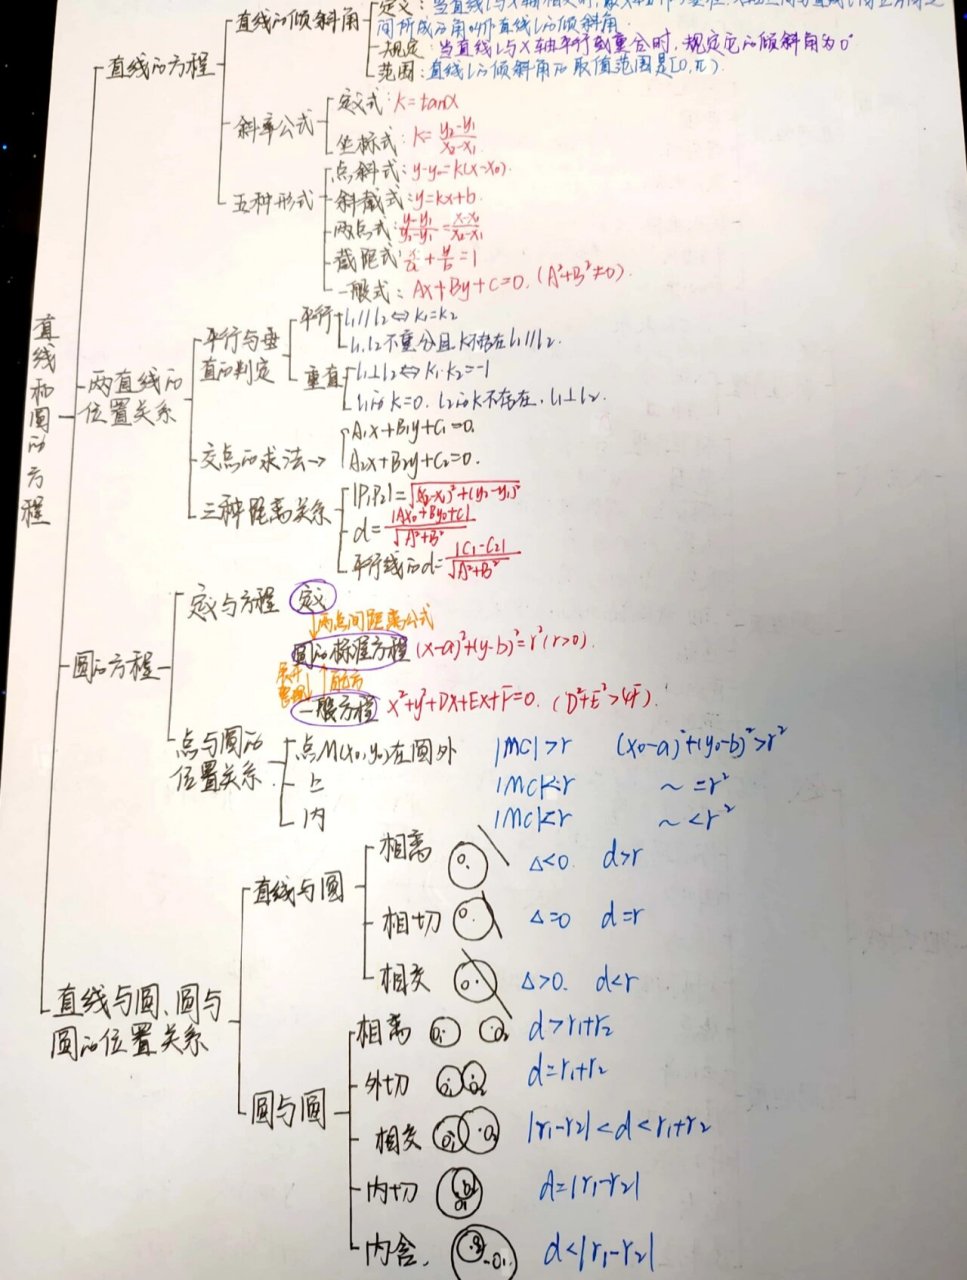 直线和圆的方程
直线的方程
直线的倾斜角
定义：当直线l与x轴相交时，
间所成的角叫作直线l的倾斜角
规定：当直线l与x轴平行或重合时，规定它的倾斜角为0°
范围：直线l的倾斜角的取值范围是[0,π).
斜率公式
定义式：k=tanα
坐标式：k=(y₂-y₁)/(x₂-x₁)
五种形式
点斜式：y-y₀=k(x-x₀).
斜截式：y=kx+b
两点式：(y-y₁)/(y₂-y₁)=(x-x₁)/(x₂-x₁)
截距式：x/a+y/b=1
一般式：Ax+By+C=0. (A²+B²≠0).
两直线的位置关系
平行与垂直的判定
平行
l₁//l₂⇔k₁=k₂
l₁,l₂不重合且k不存在l₁//l₂.
垂直
l₁⊥l₂⇔k₁·k₂=-1
l₁的k=0. l₂的k不存在. l₁⊥l₂.
交点的求法→
A₁x+B₁y+C₁=0.
A₂x+B₂y+C₂=0.
三种距离关系
|P₁P₂|=√((x₂-x₁)²+(y₂-y₁)²)
d=|Ax₀+By₀+C|/√(A²+B²)
平行线的d=|C₁-C₂|/√(A²+B²)
圆的方程
定义与方程
定义
↓两点间距离公式
圆的标准方程 (x-a)²+(y-b)²=r²(r>0).
展开整理↓ ↑配方
一般方程 x²+y²+Dx+Ex+F=0. (D²+E²>4F).
点与圆的位置关系
点M(x₀,y₀)在圆外 |MC|>r (x₀-a)²+(y₀-b)²>r²
上 |MC|=r ~=r²
内 |MC|<r ~<r²
直线与圆、圆与圆的位置关系
直线与圆
相离 Δ<0 d>r
相切 Δ=0 d=r
相交 Δ>0. d<r
圆与圆
相离 O₁ O₂ d>r₁+r₂
外切 O₁ O₂ d=r₁+r₂
相交 O₁ O₂ |r₁-r₂|<d<r₁+r₂
内切 d=|r₁-r₂|
内含. d<|r₁-r₂|